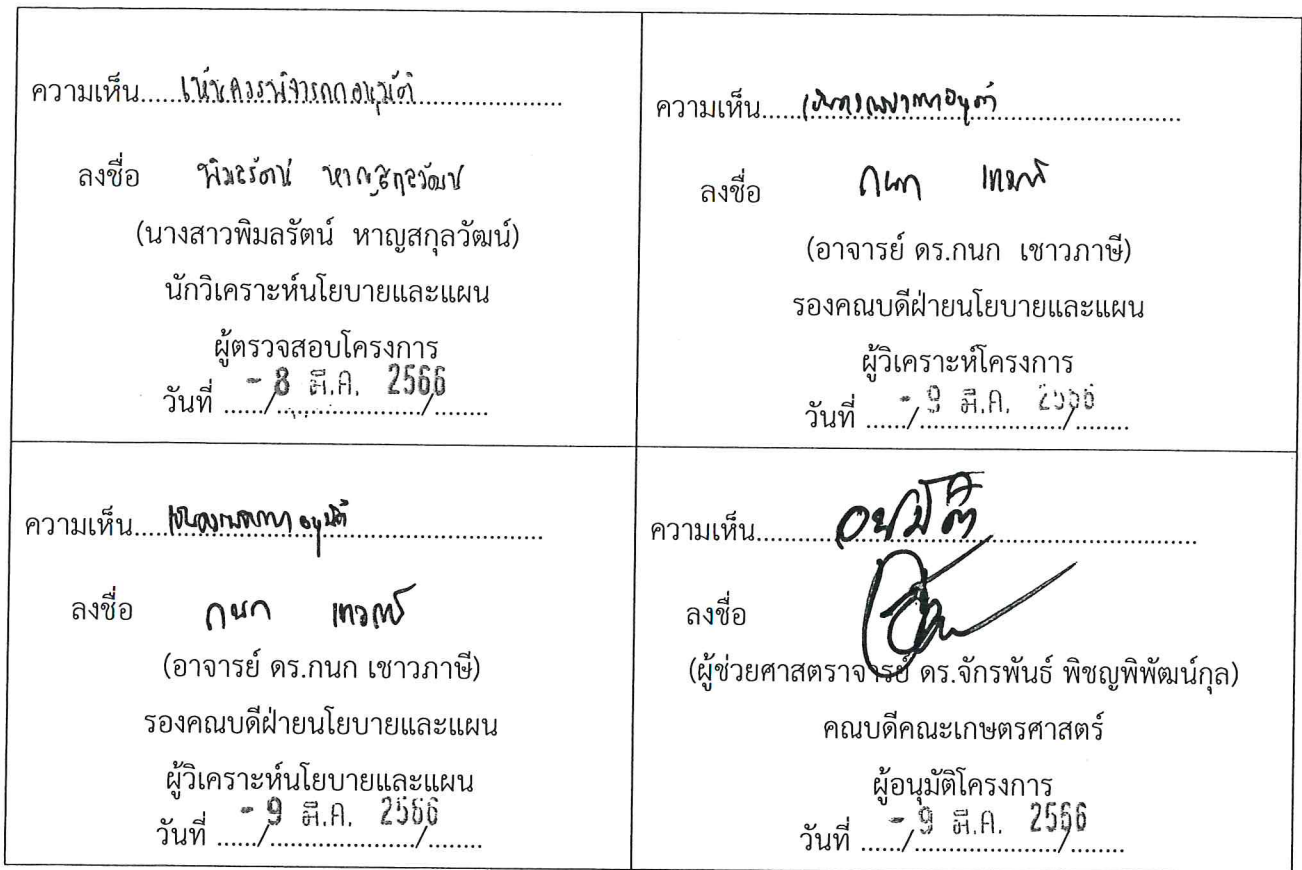 ความเห็น.....เห็นควรพิจารณาอนุมัติ.....................
ลงชื่อ พิมลรัตน์ หาญสกุลวัฒน์
(นางสาวพิมลรัตน์ หาญสกุลวัฒน์)
นักวิเคราะห์นโยบายและแผน
ผู้ตรวจสอบโครงการ
วันที่ ....../....................../........ - 8 มี.ค. 2566
ความเห็น.....เห็นควรพิจารณาอนุมัติ.....................
ลงชื่อ กนก เชาวภาษี
(อาจารย์ ดร.กนก เชาวภาษี)
รองคณบดีฝ่ายนโยบายและแผน
ผู้วิเคราะห์โครงการ
วันที่ ....../....................../........ - 9 มี.ค. 2566
ความเห็น.....เห็นควรพิจารณา อนุมัติ.....................
ลงชื่อ กนก เชาวภาษี
(อาจารย์ ดร.กนก เชาวภาษี)
รองคณบดีฝ่ายนโยบายและแผน
ผู้วิเคราะห์นโยบายและแผน
วันที่ ....../....................../........ - 9 มี.ค. 2566
ความเห็น..........อนุมัติ.....................
ลงชื่อ
(ผู้ช่วยศาสตราจารย์ ดร.จักรพันธ์ พิชญพิพัฒน์กุล)
คณบดีคณะเกษตรศาสตร์
ผู้อนุมัติโครงการ
วันที่ ....../....................../........ - 9 มี.ค. 2566